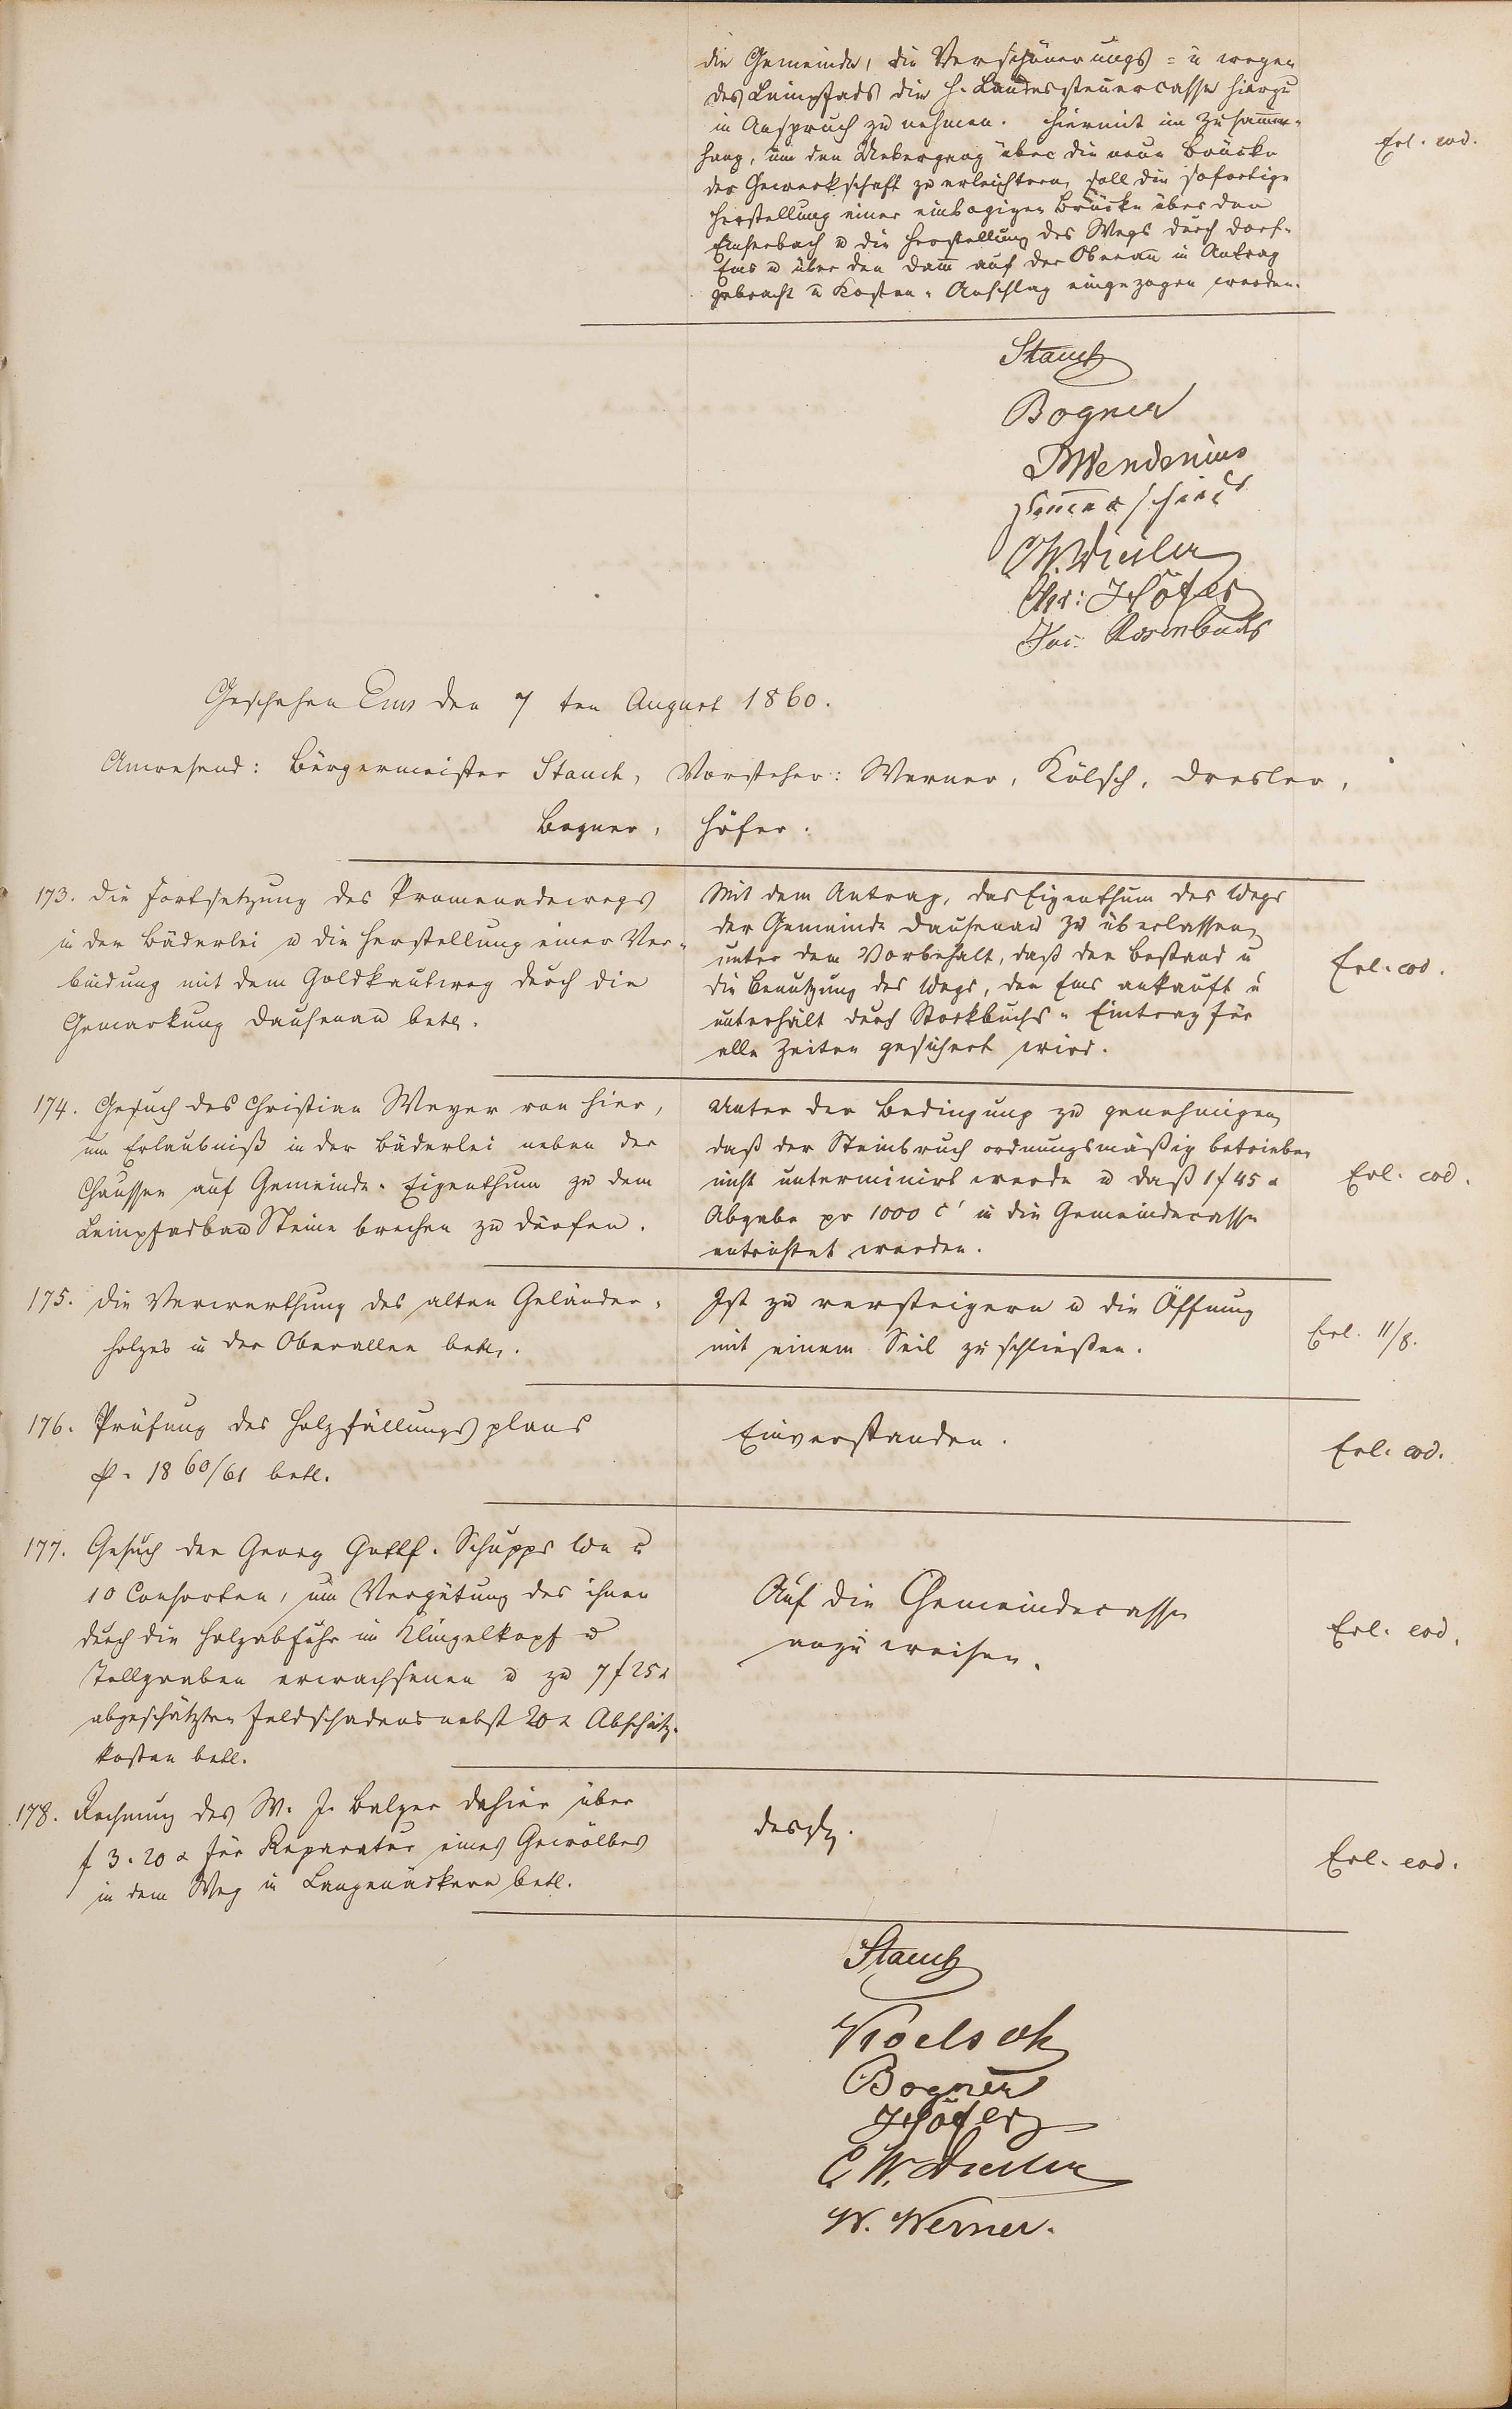 die Gemeinde, die Verschönerungs= u wegen
des Leinpfads die H. Landessteuercasse hierzu
in Anspruch zu nehmen. Hiermit im Zusammen-
hang, um den Uebergang über die neue Brücke
der Gewerkschaft zu erleichtern, soll die sofortige
Herstellung einer einbogigen Brücke über den
Emserbach u die Herstellung des Wegs durch Dorf-
Ems u über den Damm auf der Oberau in Antrag
gebracht u Kosten-Anschlag eingezogen werden.
Erl. eod.
Stauch
Bogner
Wendenius
C W. Dresler
Chr: Höfer
Jac.
Geschehen Ems den 7 ten August 1860.
Anwesend: Bürgermeister Stauch, Vorsteher: Werner, Kölsch, Dresler,
Bogner, Höfer.
173. Die Fortsetzung des Promenadewegs
in der Bäderlei u die Herstellung einer Ver-
bindung mit dem Goldkautweg durch die
Gemarkung Dausenau betr.
Mit dem Antrag, das Eigenthum des Wegs
der Gemeinde Dausenau zu überlassen,
unter dem Vorbehalt, daß der Bestand u
die Benutzung des Wegs, den Ems ankauft u
unterhält durch Stockbuchs-Eintrag für
alle Zeiten gesichert wird.
Erl. eod.
174. Gesuch des Christian Meyer von hier,
um Erlaubniß in der Bäderlei neben der
Chaussee auf Gemeinde-Eigenthum zu dem
Leinpfadbau Steine brechen zu dürfen.
Unter der Bedingung zu genehmigen,
daß der Steinbruch ordnungsmäßig betrieben
nicht unterminirt werde u daß 1 f 45 x
Abgabe pr 1000 c' in die Gemeindecasse
entrichtet werden.
Erl. eod.
175. Die Verwerthung des alten Geländer-
holzes in der Oberallee betr.
Ist zu versteigern u die Öffnung
mit einem Seil zu schließen.
Erl. 11/8.
176. Prüfung des Holzfällungsplans
p. 1860/61 betr.
Einverstanden.
Erl. eod.
177. Gesuch der Georg Gottf. Schupps Wn u
10 Consorten, um Vergütung des ihnen
durch die Holzabfuhr im Klingelkopf u
Tellgraben erwachsenen u zu 7 f 25 x
abgeschätzten Feldschadens nebst 20 x Abschätz-
kosten betr.
Auf die Gemeindecasse
anzuweisen.
Erl. eod.
178. Rechnung des W. J. Balzer dahier über
f 3. 20 x für Reparatur eines Gewölbes
in dem Weg in Langenäckern betr.
desgl.
Erl. eod.
Stauch
Koelsch
Bogner
Höfer
C W. Dresler
W. Werner.